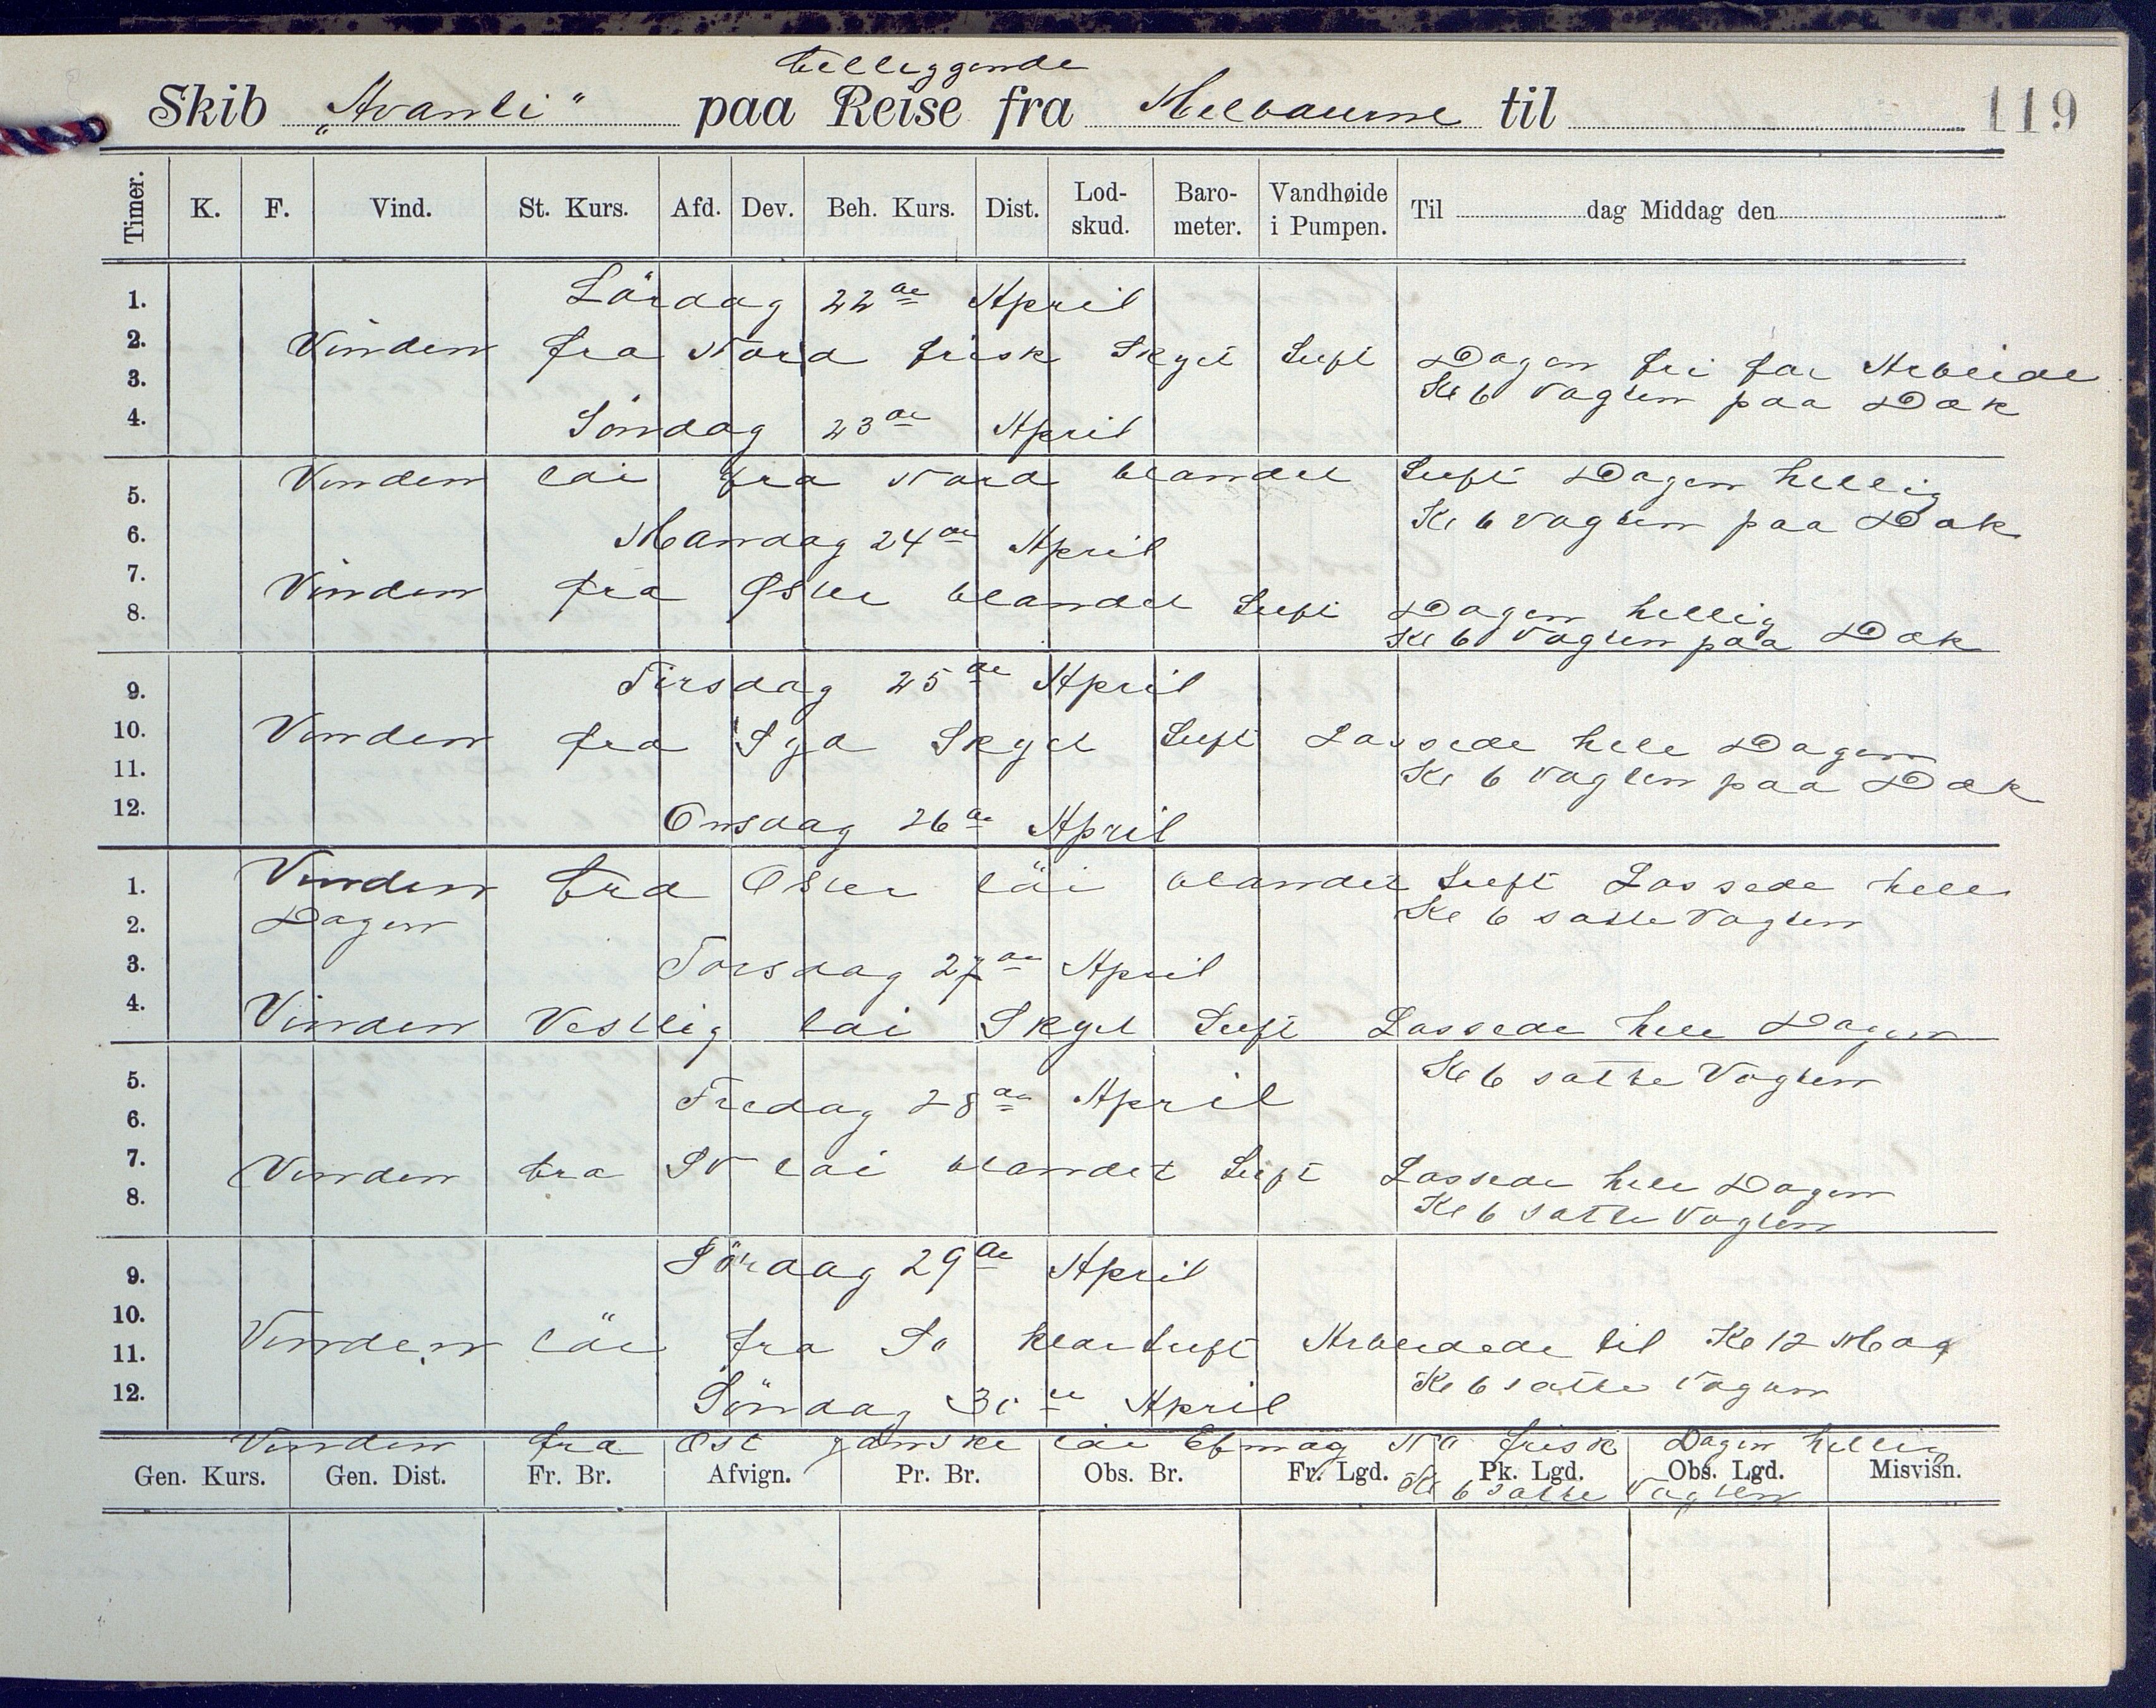 tilliggende
Skib „Avanti“ paa Reise fra Melbaurne til 119
Timer. K. F. Vind. St. Kurs. Afd. Dev. Beh. Kurs. Dist. Lod-skud. Baro-meter. Vandhøide i Pumpen. Til dag Middag den
1. Lördag 22de April
2. Vinden fra Nord frisk Skyet Luft Dagen fri for Arbeide
3. Kl 6 Vagten paa Dæk
4. Söndag 23de April
Vinden löi fra Nord blandet Luft Dagen hellig
5. Kl 6 Vagten paa Dæk
6. Mandag 24de April
7. Vinden fra Øster blandet Luft Dagen hellig
8. Kl 6 Vagten paa Dæk
9. Tirsdag 25de April
10. Vinden fra Syd Skyet Luft Lassede hele Dagen
11. Kl 6 Vagten paa Dæk
12. Onsdag 26de April
1. Vinden fra Öster löi blandet Luft Lossede hele
2. Dagen Kl 6 satte Vagten
3. Torsdag 27de April
4. Vinden Vestlig löi Skyet Luft Lossede hele Dagen
5. Kl 6 satte Vagten
6. Fredag 28de April
7. Vinden fra SV löi blandet Luft Lossede hele Dagen
8. Kl 6 satte Vagten
9. Lördag 29de April
10.
11. Vinden löi fra So klar Luft Arbeidede til Kl 12 Mdg
12. Söndag 30te April Kl 6 satte Vagten
Vinden fra Ost ganske löi Efmdg No frisk Dagen hellig
Gen. Kurs. Gen. Dist. Fr. Br. Afvign. Pr. Br. Obs. Br. Fr. Lgd. Pk. Lgd. Obs. Lgd. Misvisn.
Kl 6 satte Vagten